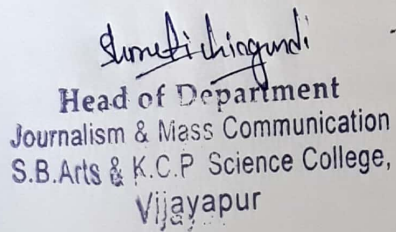 Head of Department
Journalism & Mass Communication
S.B.Arts & K.C.P Science College,
Vijayapur